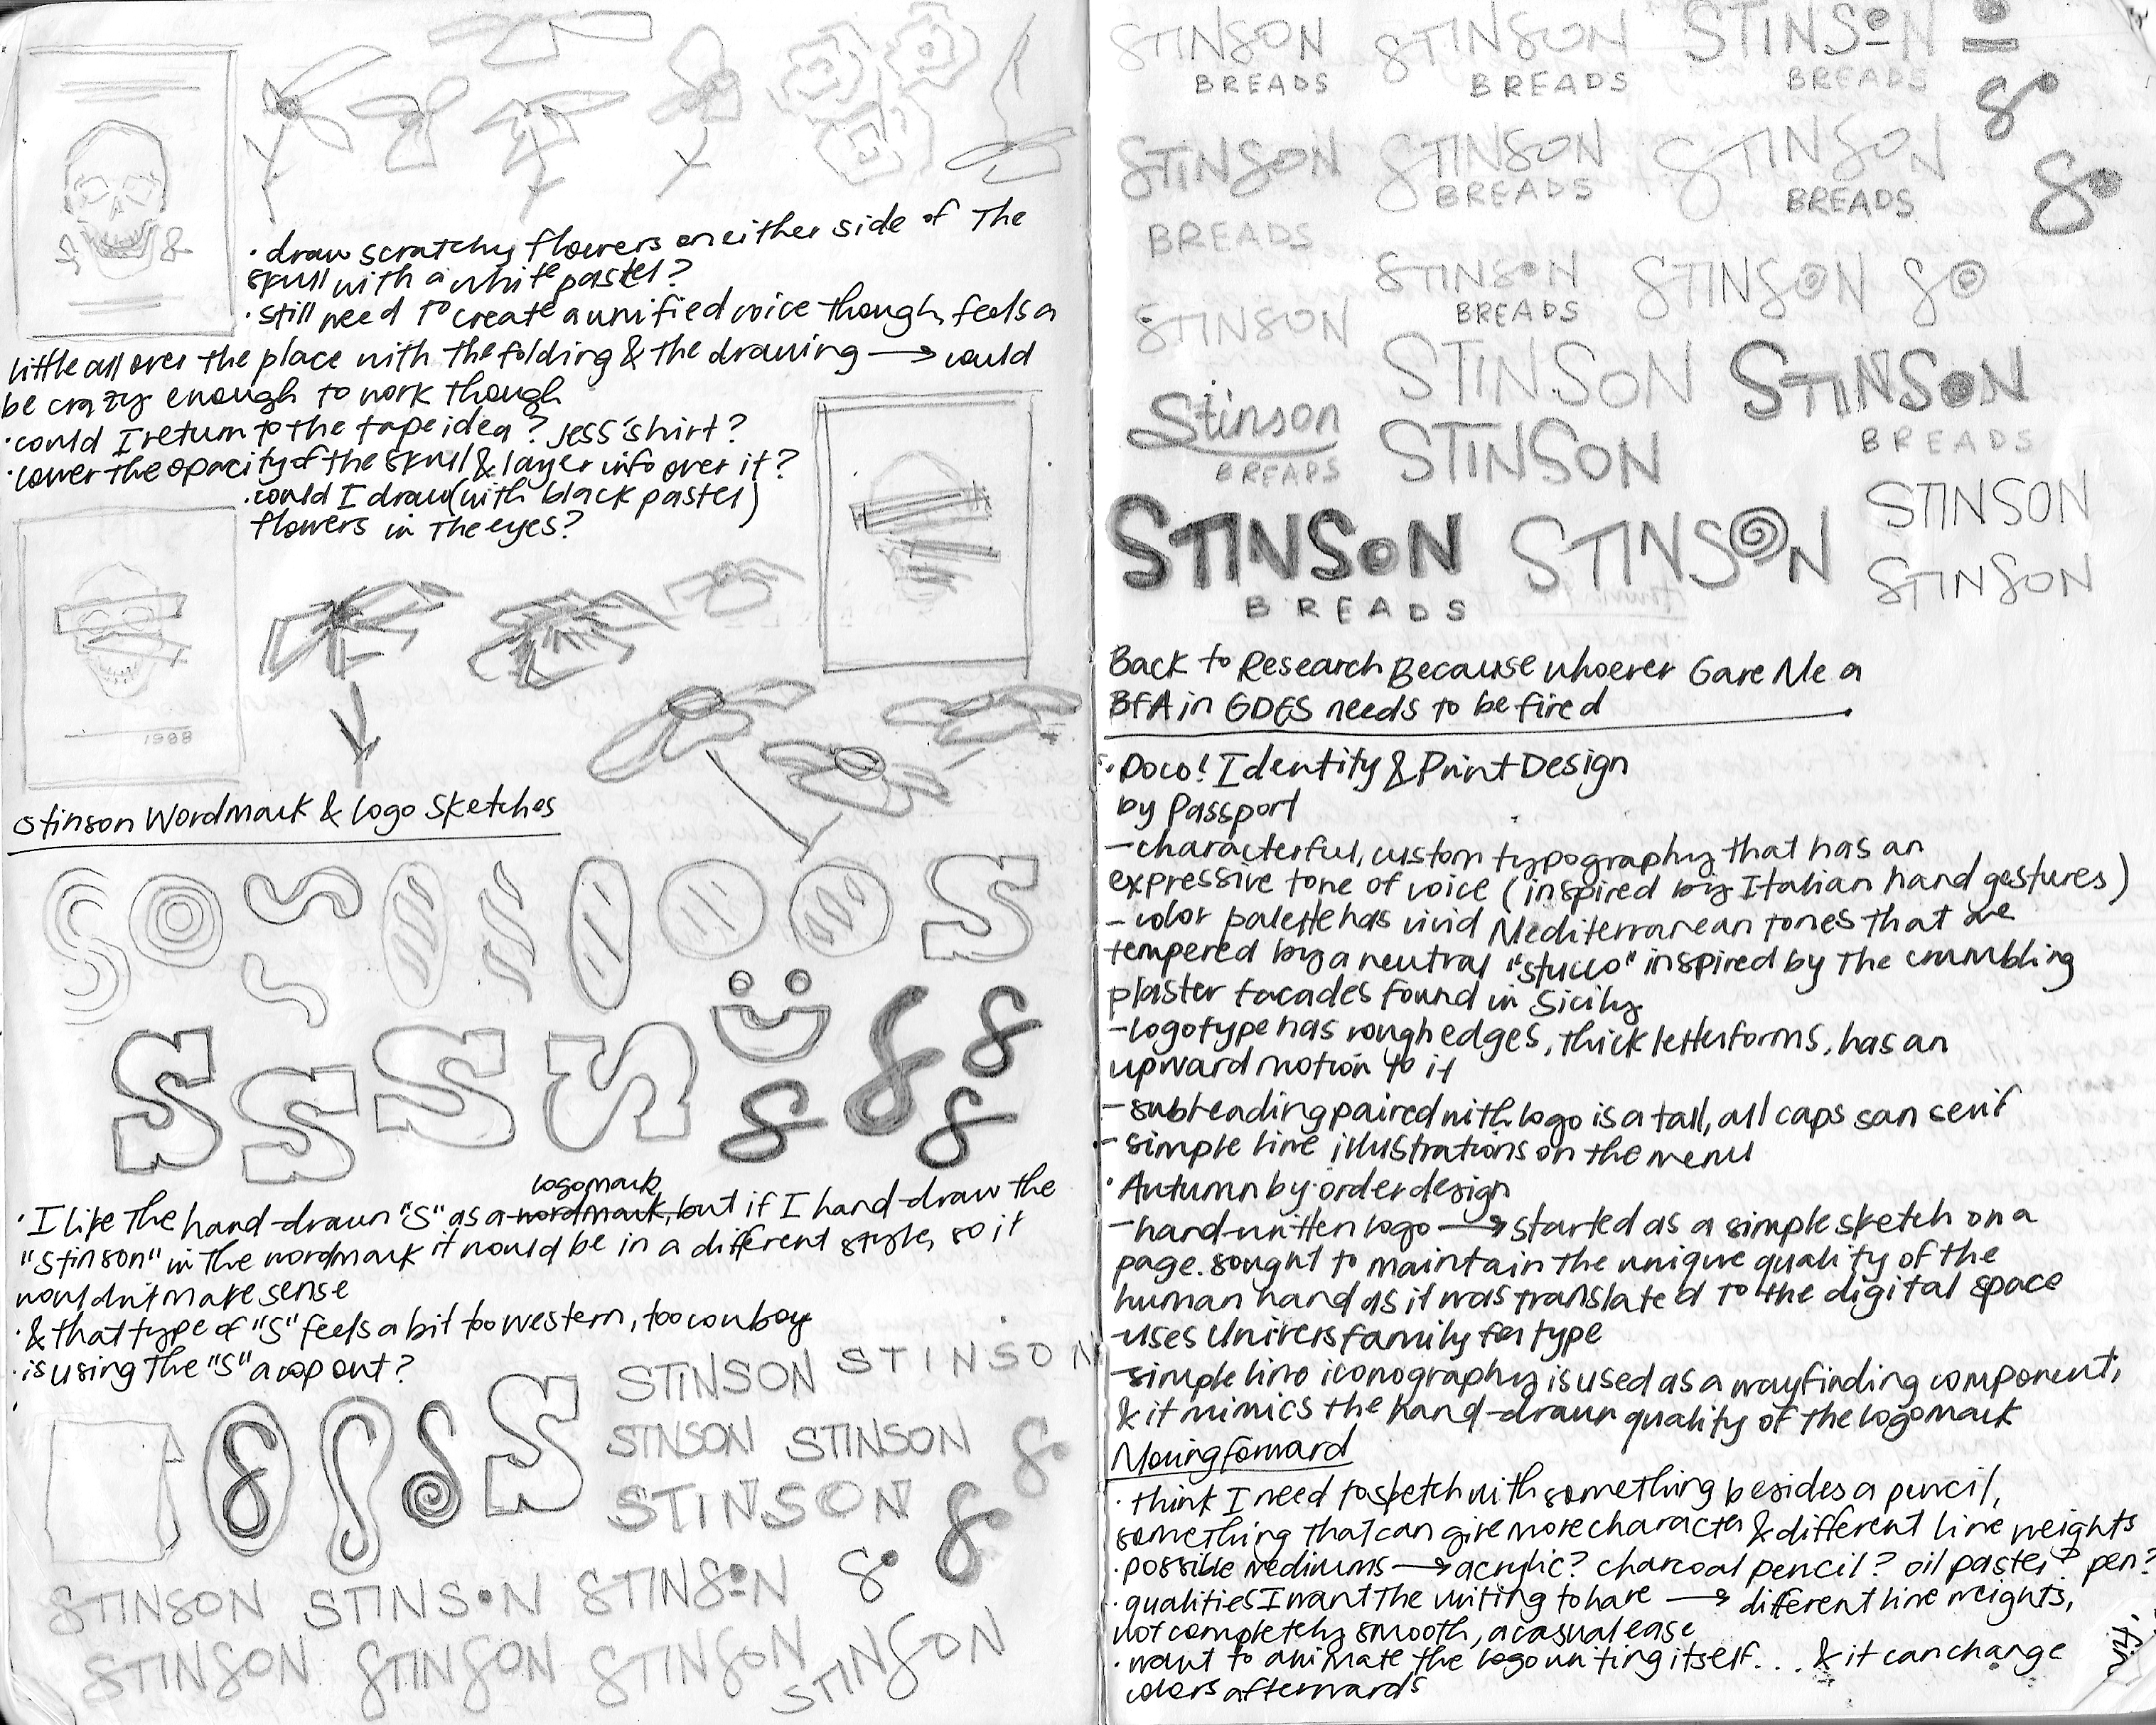 · draw scratchy flowers on either side of The
skull with a white pastel?
· still need to create a unified voice though, feels a
little all over the place with the folding & the drawing → could
be crazy enough to work though
· could I return to the tape idea? Jess' shirt?
· lower the opacity of the skull & layer info over it?
· could I draw (with black pastel)
flowers in the eyes?
1988
Stinson Wordmark & Logo Sketches
S
S S S S
logomark
· I like the hand-drawn "S" as a wordmark, but if I hand-draw the
"Stinson" in the wordmark it would be in a different style, so it
wouldn't make sense
· & that type of "S" feels a bit too western, too cowboy
· is using the "S" a cop out?
STINSON STINSON
STINSON STINSON
STINSON
STINSON STINSON STINSON
STINSON STINSON STINSON STINSON
STINSON STINSON STINSON
BREADS BREADS BREADS
STINSON STINSON STINSON
BREADS BREADS BREADS
STINSON STINSON
BREADS
STINSON
STINSON STINSON
Stinson BREADS
BREADS STINSON
STINSON
STINSON STINSON STINSON
BREADS
Back to Research Because whoever Gave Me a
BFA in GDES needs to be fired
· Doco! Identity & Print Design
by Passport
– characterful, custom typography that has an
expressive tone of voice (inspired by Italian hand gestures)
– color palette has vivid Mediterranean tones that are
tempered by a neutral "stucco" inspired by the crumbling
plaster facades found in Sicily
– logotype has rough edges, thick letterforms, has an
upward motion to it
– subheading paired with logo is a tall, all caps san serif
– simple line illustrations on the menu
· Autumn by order design
– hand-written logo → started as a simple sketch on a
page. sought to maintain the unique quality of the
human hand as it was translated to the digital space
– uses Univers family for type
– simple line iconography is used as a wayfinding component,
& it mimics the hand-drawn quality of the logomark
Moving forward
· think I need to sketch with something besides a pencil,
something that can give more character & different line weights
· possible mediums → acrylic? charcoal pencil? oil pastel? pen?
· qualities I want the writing to have → different line weights,
not completely smooth, a casual ease
· want to animate the logo writing itself... & it can change
colors afterwards